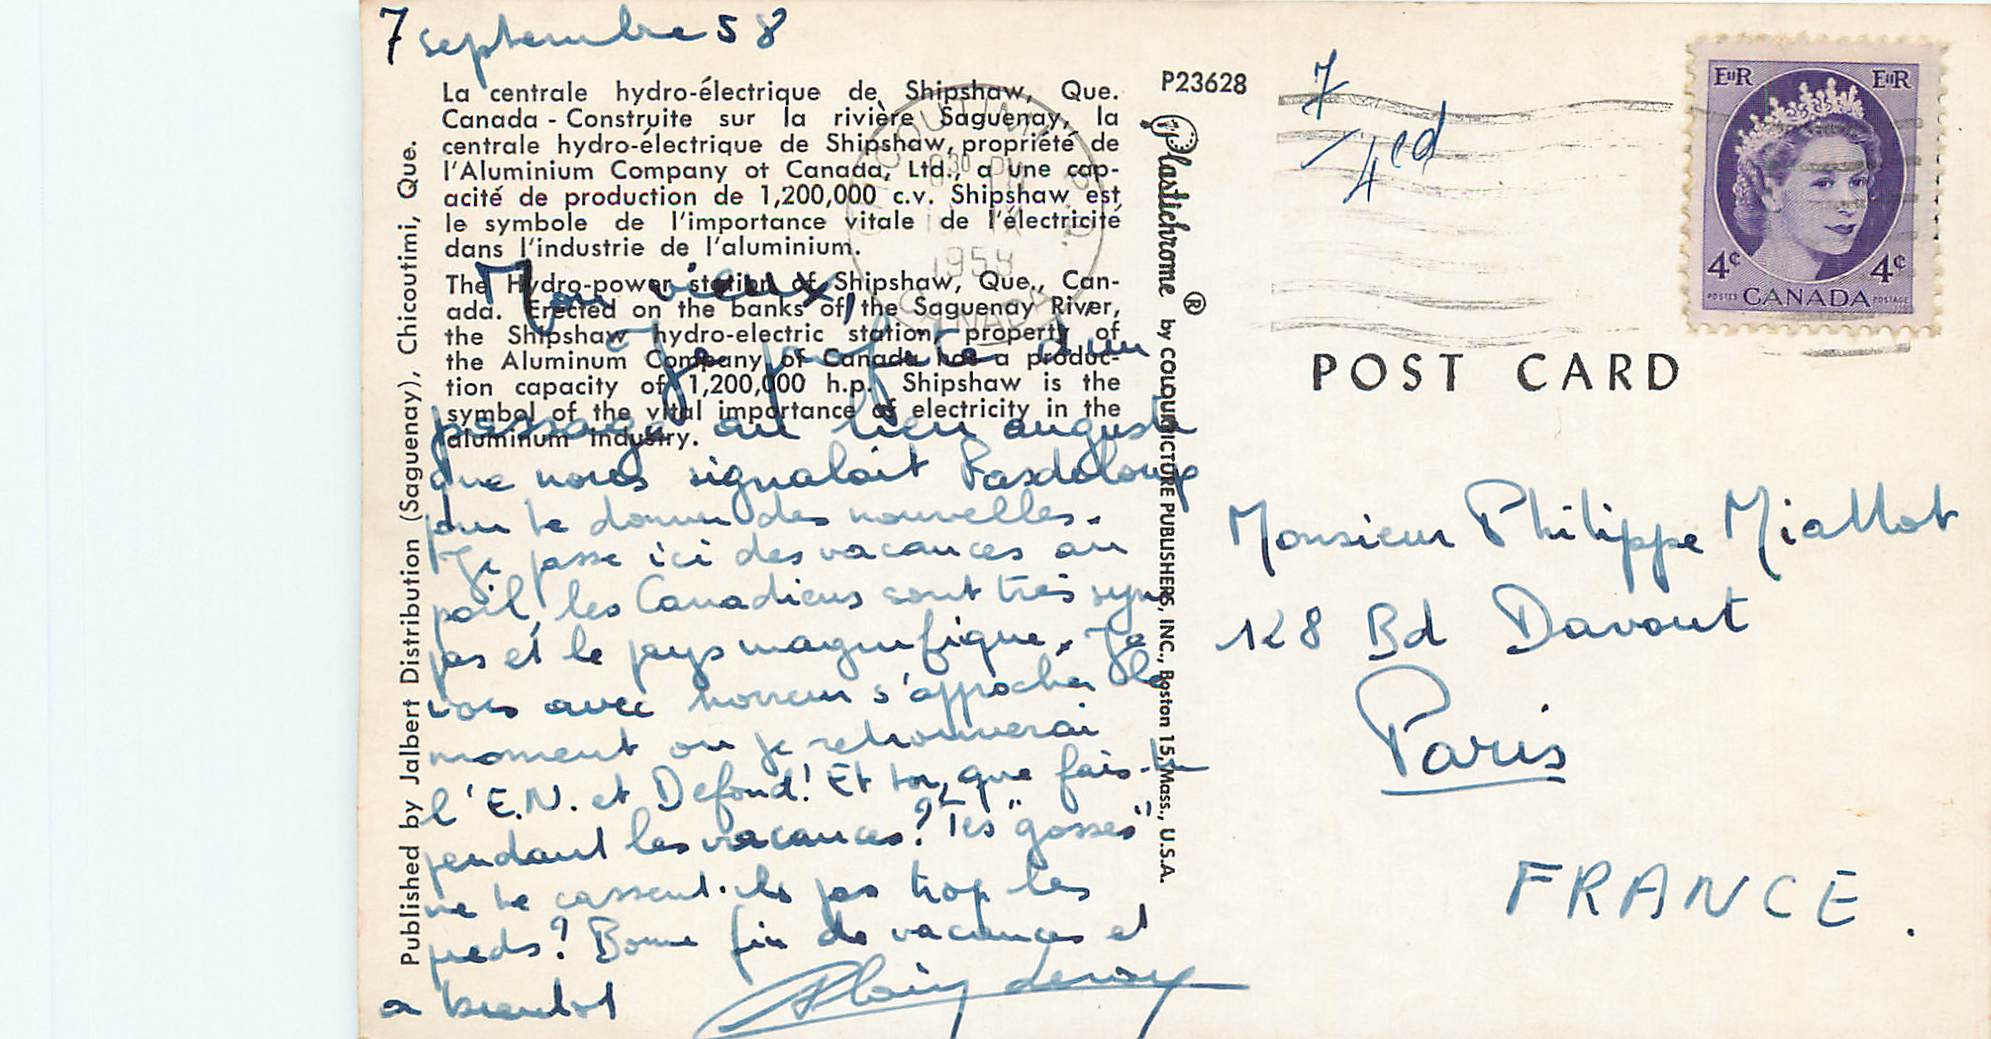 7 septembre 58
La centrale hydro-électrique de Shipshaw, Que.
Canada - Construite sur la rivière Saguenay, la
centrale hydro-électrique de Shipshaw, propriété de
l'Aluminium Company of Canada, Ltd., a une cap-
acité de production de 1,200,000 c.v. Shipshaw est
le symbole de l'importance vitale de l'électricité
dans l'industrie de l'aluminium.
The Hydro-power station of Shipshaw, Que., Can-
ada. Erected on the banks of the Saguenay River,
the Shipshaw hydro-electric station, property of
the Aluminum Company of Canada has a produc-
tion capacity of 1,200,000 h.p. Shipshaw is the
symbol of the vital importance of electricity in the
aluminum industry.
Mon vieux,
Je profite d'un
passage au lieu auguste
que nous signalait Pasdeloup
pour te donner des nouvelles.
Je passe ici des vacances au
poil, les Canadiens sont très sym
pas et le pays magnifique. Je
vois avec horreur s'approcher le
moment où je retrouverai
l'E.N. et Defond! Et toi, que fais-tu
pendant les vacances? Tes "gosses"
ne te cassent-ils pas trop les
pieds? Bonne fin de vacances et
a bientot
Alain Leroy
Published by Jalbert Distribution (Saguenay), Chicoutimi, Que.
P23628
Plastichrome ® by COLOURPICTURE PUBLISHERS, INC., Boston 15, Mass., U.S.A.
CHICOUTIMI P.Q.
30 PM
IX
1958
CANADA
7
4 ed
EIIR EIIR
4¢ 4¢
POSTES CANADA POSTAGE
POST CARD
Monsieur Philippe Miallot
128 Bd Davout
Paris
FRANCE.